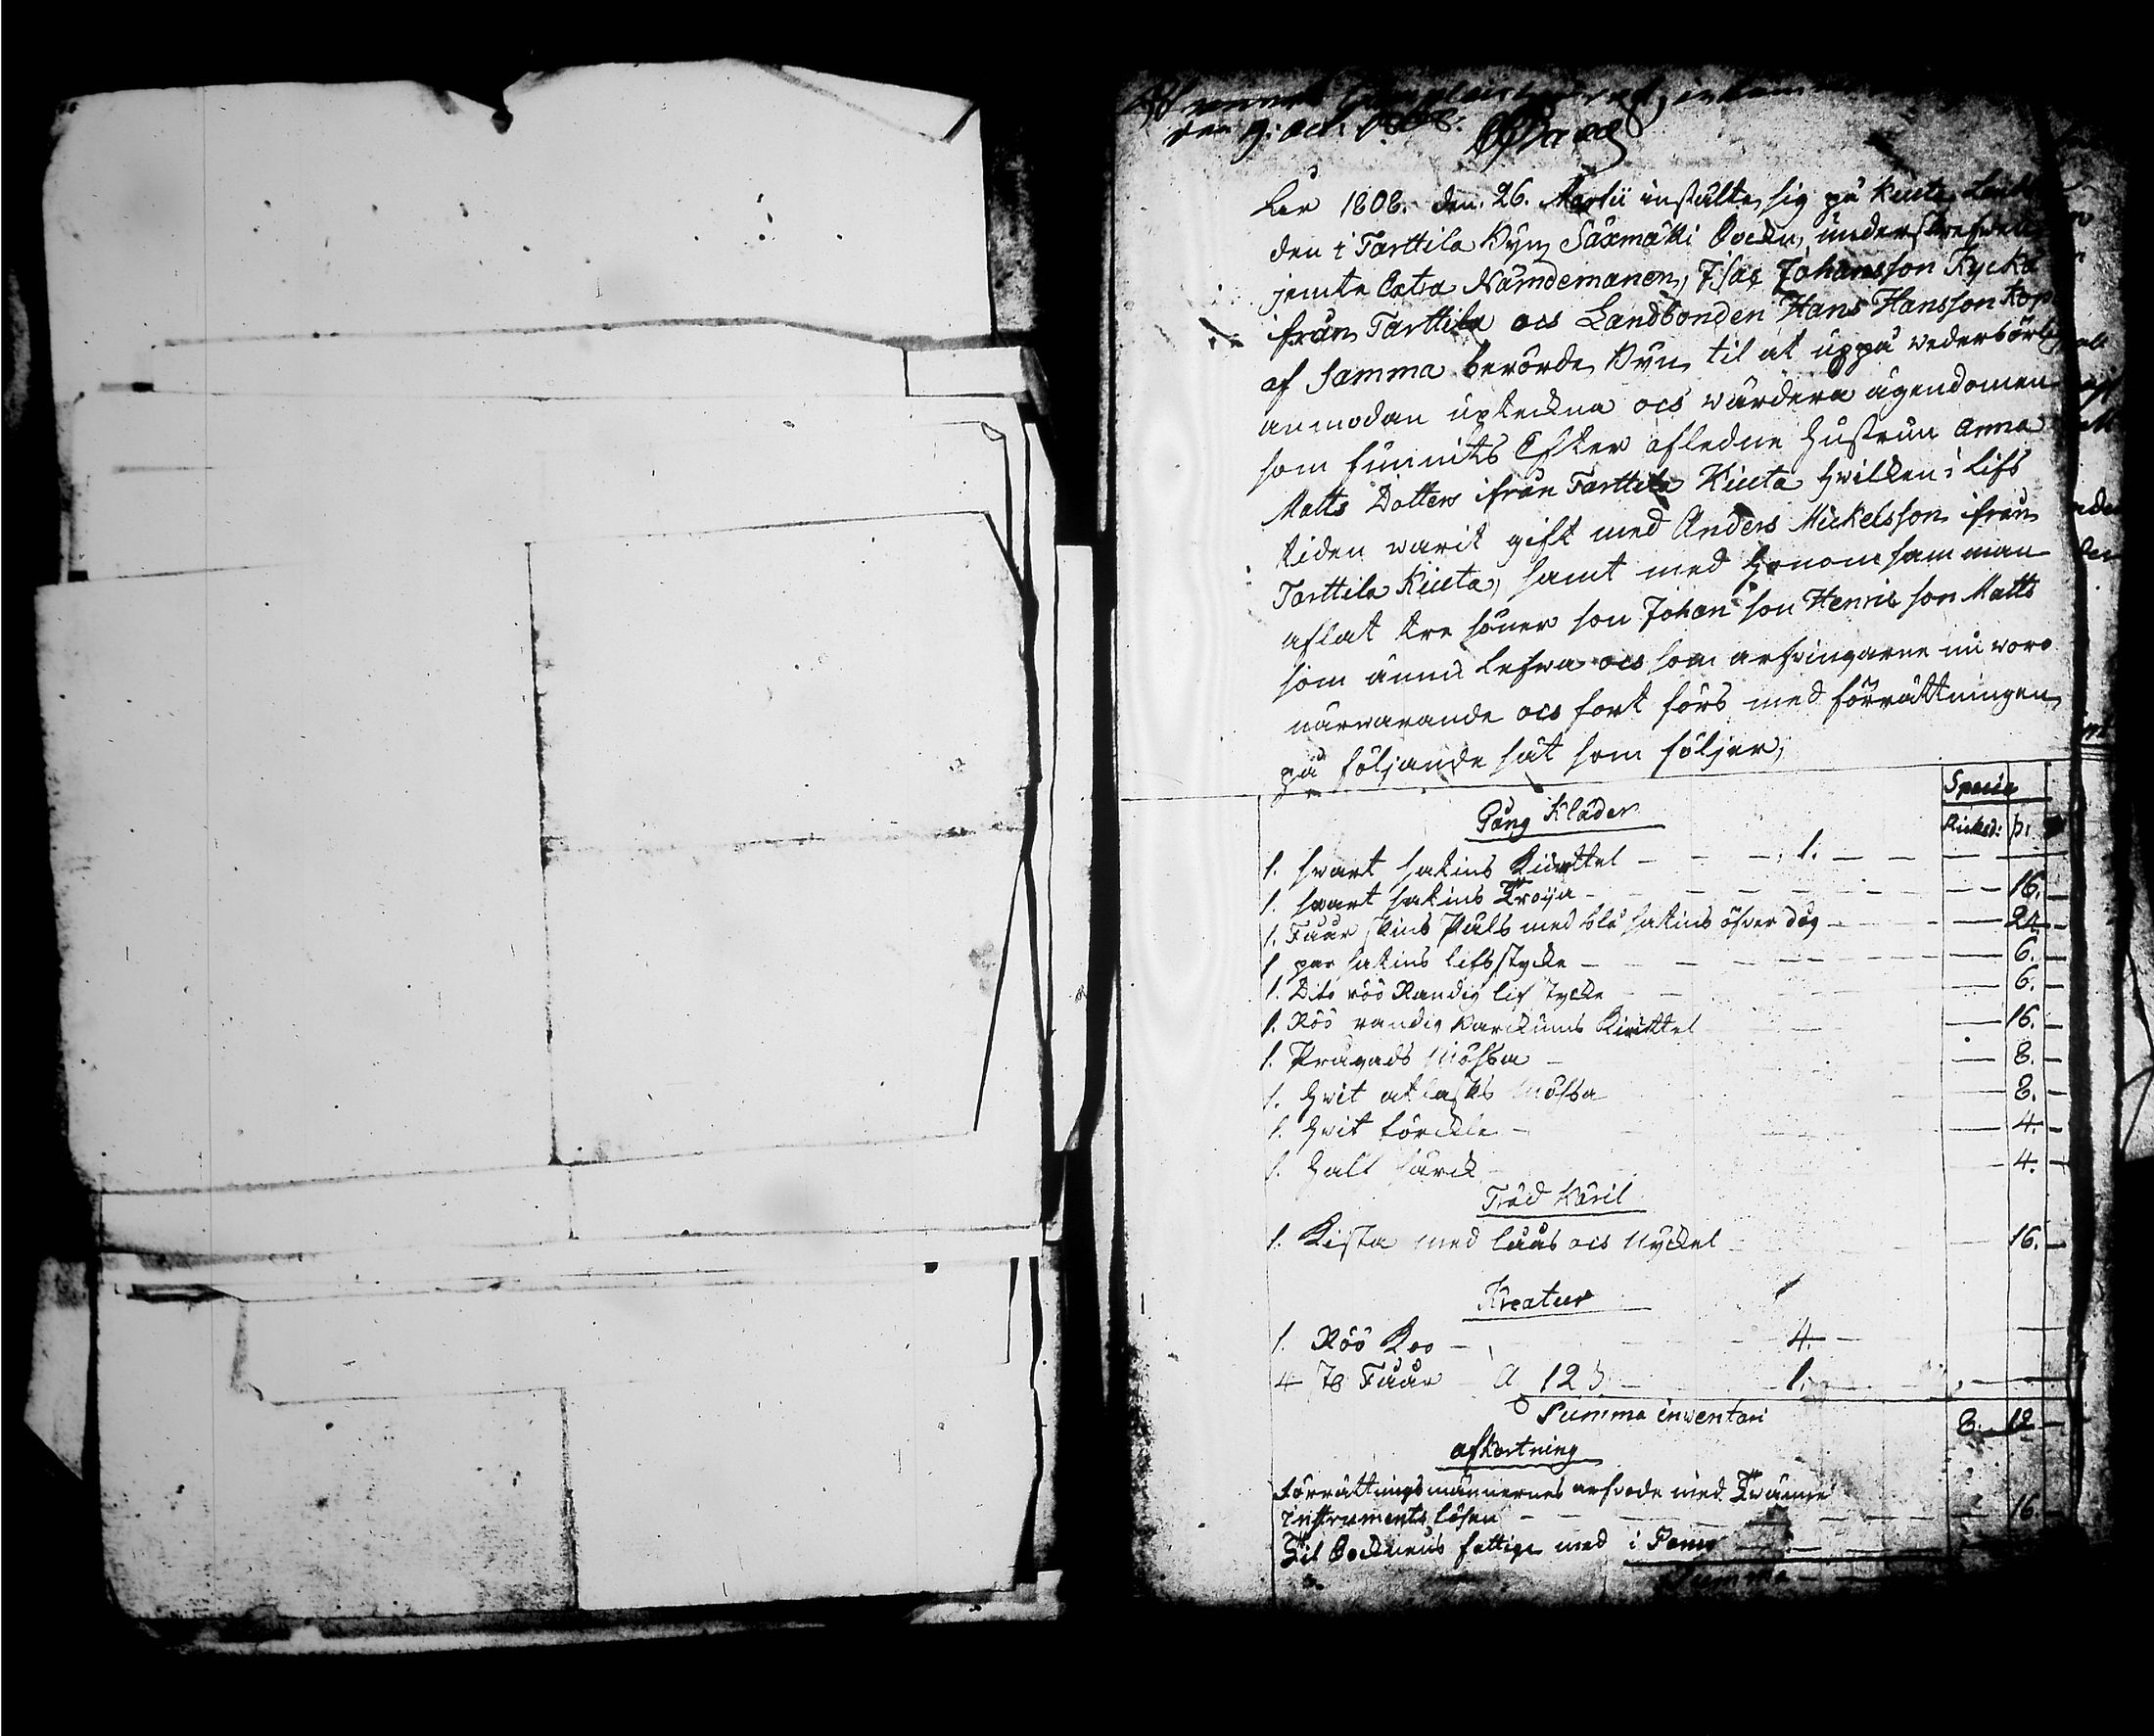 den 9: Oct: 1808.
År 1808. den. 26. Martii instälte sig på Kiuta
den i Tarttila Byn Säxmäki Sockn, underskrefven
jemte Extra Nämdemanen, Isac Johansson Kycka
ifrån Tarttila och Landbonden Hans Hansson Kop
af samma berörde Byn, til at uppå vederbörlig
anmodan upteckna och värdera ägendomen
som funnits Efter afledne hustrun Anna
Matts Dotter ifrån Tarttila Kiuta hvilken i lifs
tiden warit gift med Anders Mickelsson ifrån
Tarttila Kiuta, samt med honom samman
aflat tre söner son Johan son Henric son Matts
som ännu lefva och som arfvingarne nu woro
närvarande och fort förs med förrättningen
på följande sät som följer,
Specie
Gång Kläder
Riksd: ß:
1. svart satins Kiorttel - 1. -
1. svart satins Tröija - 16. -
1. Fåår skins Päls med blå satins öfver dug - 24. -
1 par satins lifstycke - 6. -
1. Dito röö Randig lif tycke - 6. -
1. Röö randig Parckums Kiorttel - 16. -
1. Prågads Mössa - 8. -
1. hvit atlasks Mössa - 8. -
1. hvit förckle - 4. -
1. halt särck - 4. -
Träd Käril
1. Kista med låås och nyckel - 16. -
Kreatur
1. Röö Koo - 4. -
4 st Fåår a 12 ß - 1. -
Summa inventari 8. 12 -
afkortning
Förrättningsmännernes arfvode med
instruments lösen - 16. -
Til Socknens fattige med
Summa -